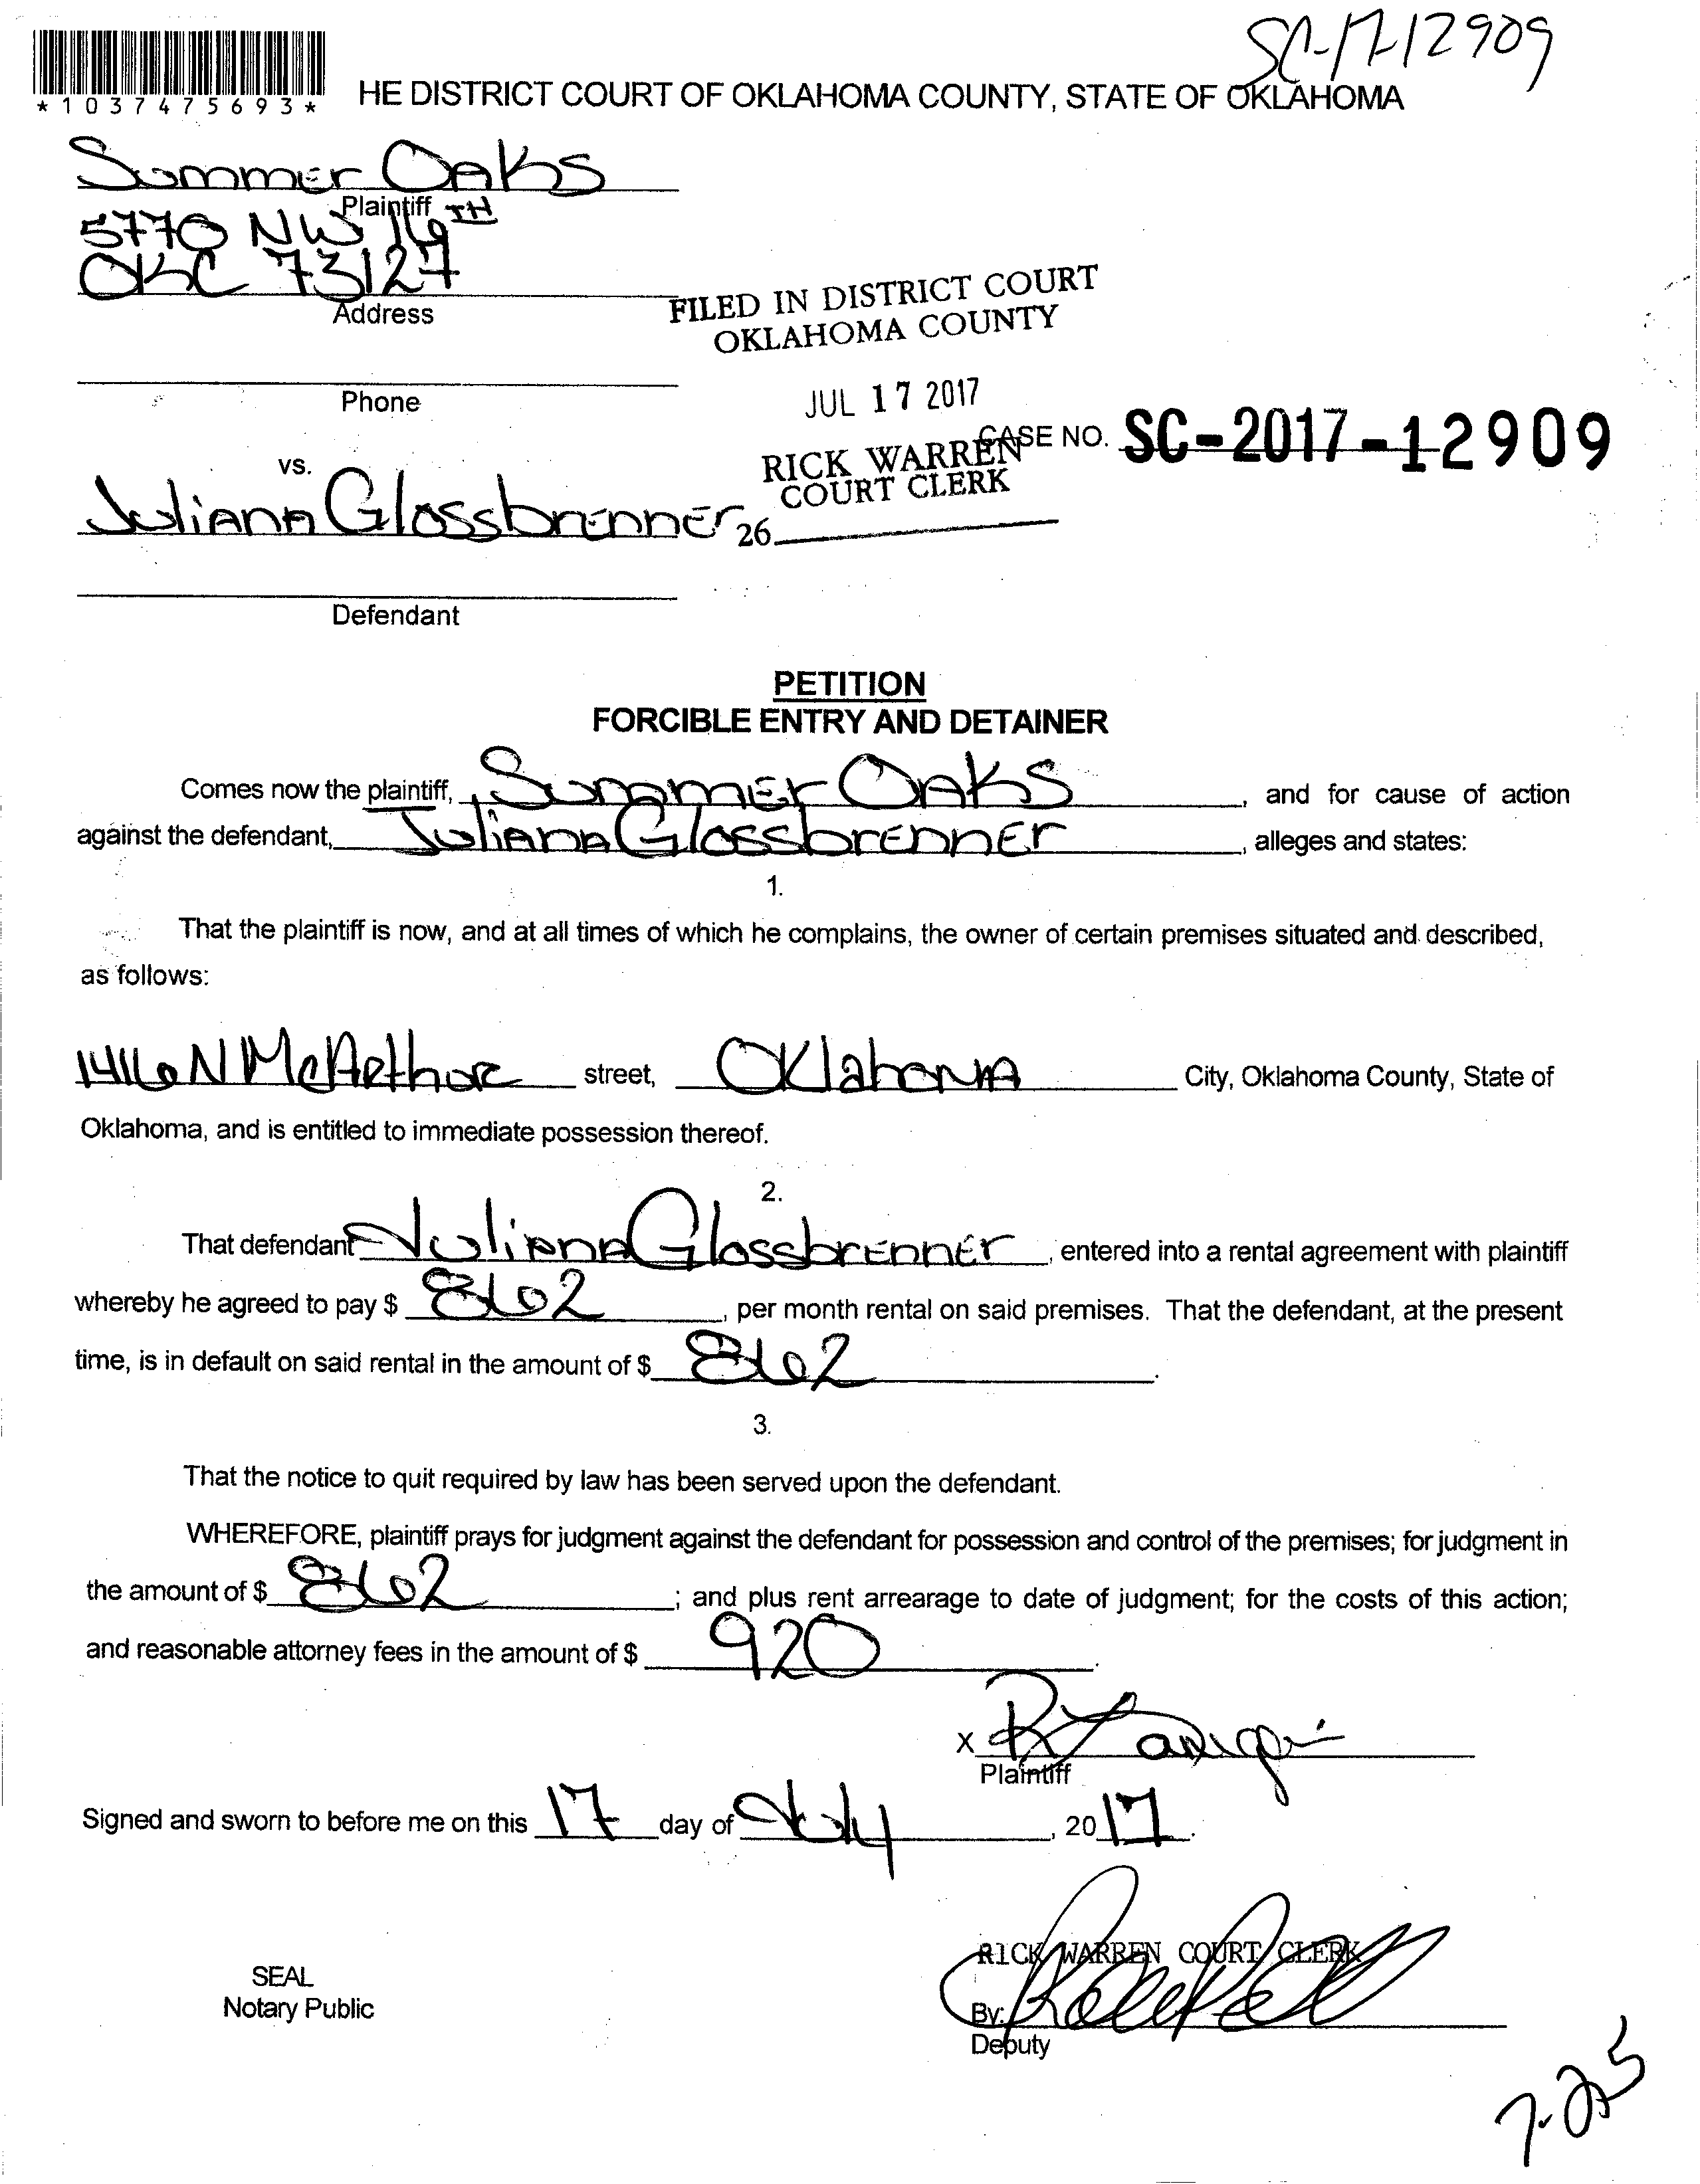 SC-17-12909
*1037475693*
HE DISTRICT COURT OF OKLAHOMA COUNTY, STATE OF OKLAHOMA
Summer Oaks
Plaintiff
5770 NW 16TH
OKC 73127
Address
FILED IN DISTRICT COURT
OKLAHOMA COUNTY
Phone
JUL 17 2017
CASE NO. SC-2017-12909
RICK WARREN
COURT CLERK
vs.
Juliana Glossbrenner
26
Defendant
PETITION
FORCIBLE ENTRY AND DETAINER
Comes now the plaintiff, Summer Oaks, and for cause of action
against the defendant, Juliana Glossbrenner, alleges and states:
1.
That the plaintiff is now, and at all times of which he complains, the owner of certain premises situated and described,
as follows:
1416 N McArthur street, Oklahoma City, Oklahoma County, State of
Oklahoma, and is entitled to immediate possession thereof.
2.
That defendant Juliana Glossbrenner, entered into a rental agreement with plaintiff
whereby he agreed to pay $ 862, per month rental on said premises. That the defendant, at the present
time, is in default on said rental in the amount of $ 862.
3.
That the notice to quit required by law has been served upon the defendant.
WHEREFORE, plaintiff prays for judgment against the defendant for possession and control of the premises; for judgment in
the amount of $ 862; and plus rent arrearage to date of judgment; for the costs of this action;
and reasonable attorney fees in the amount of $ 920.
X
Plaintiff
Signed and sworn to before me on this 17 day of July, 2017.
RICK WARREN COURT CLERK
SEAL
Notary Public
By:
Deputy
7-25